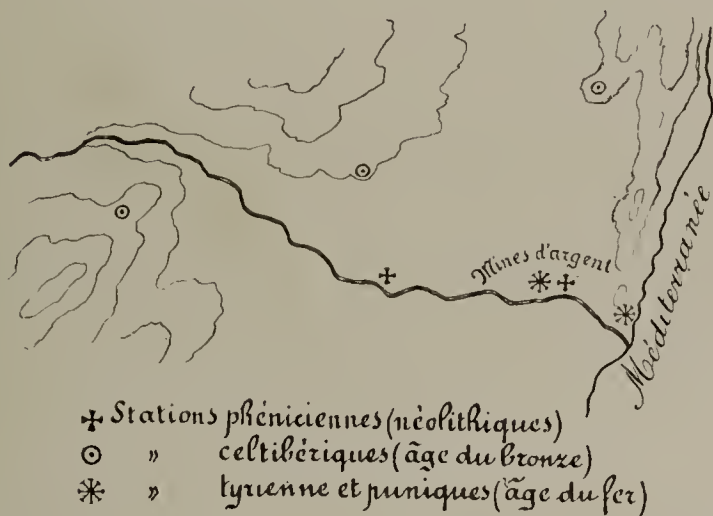 Mines d'argent
Méditerranée
Stations phéniciennes (néolithiques)
" celtibériques (âge du bronze)
" tyrienne et puniques (âge du fer)